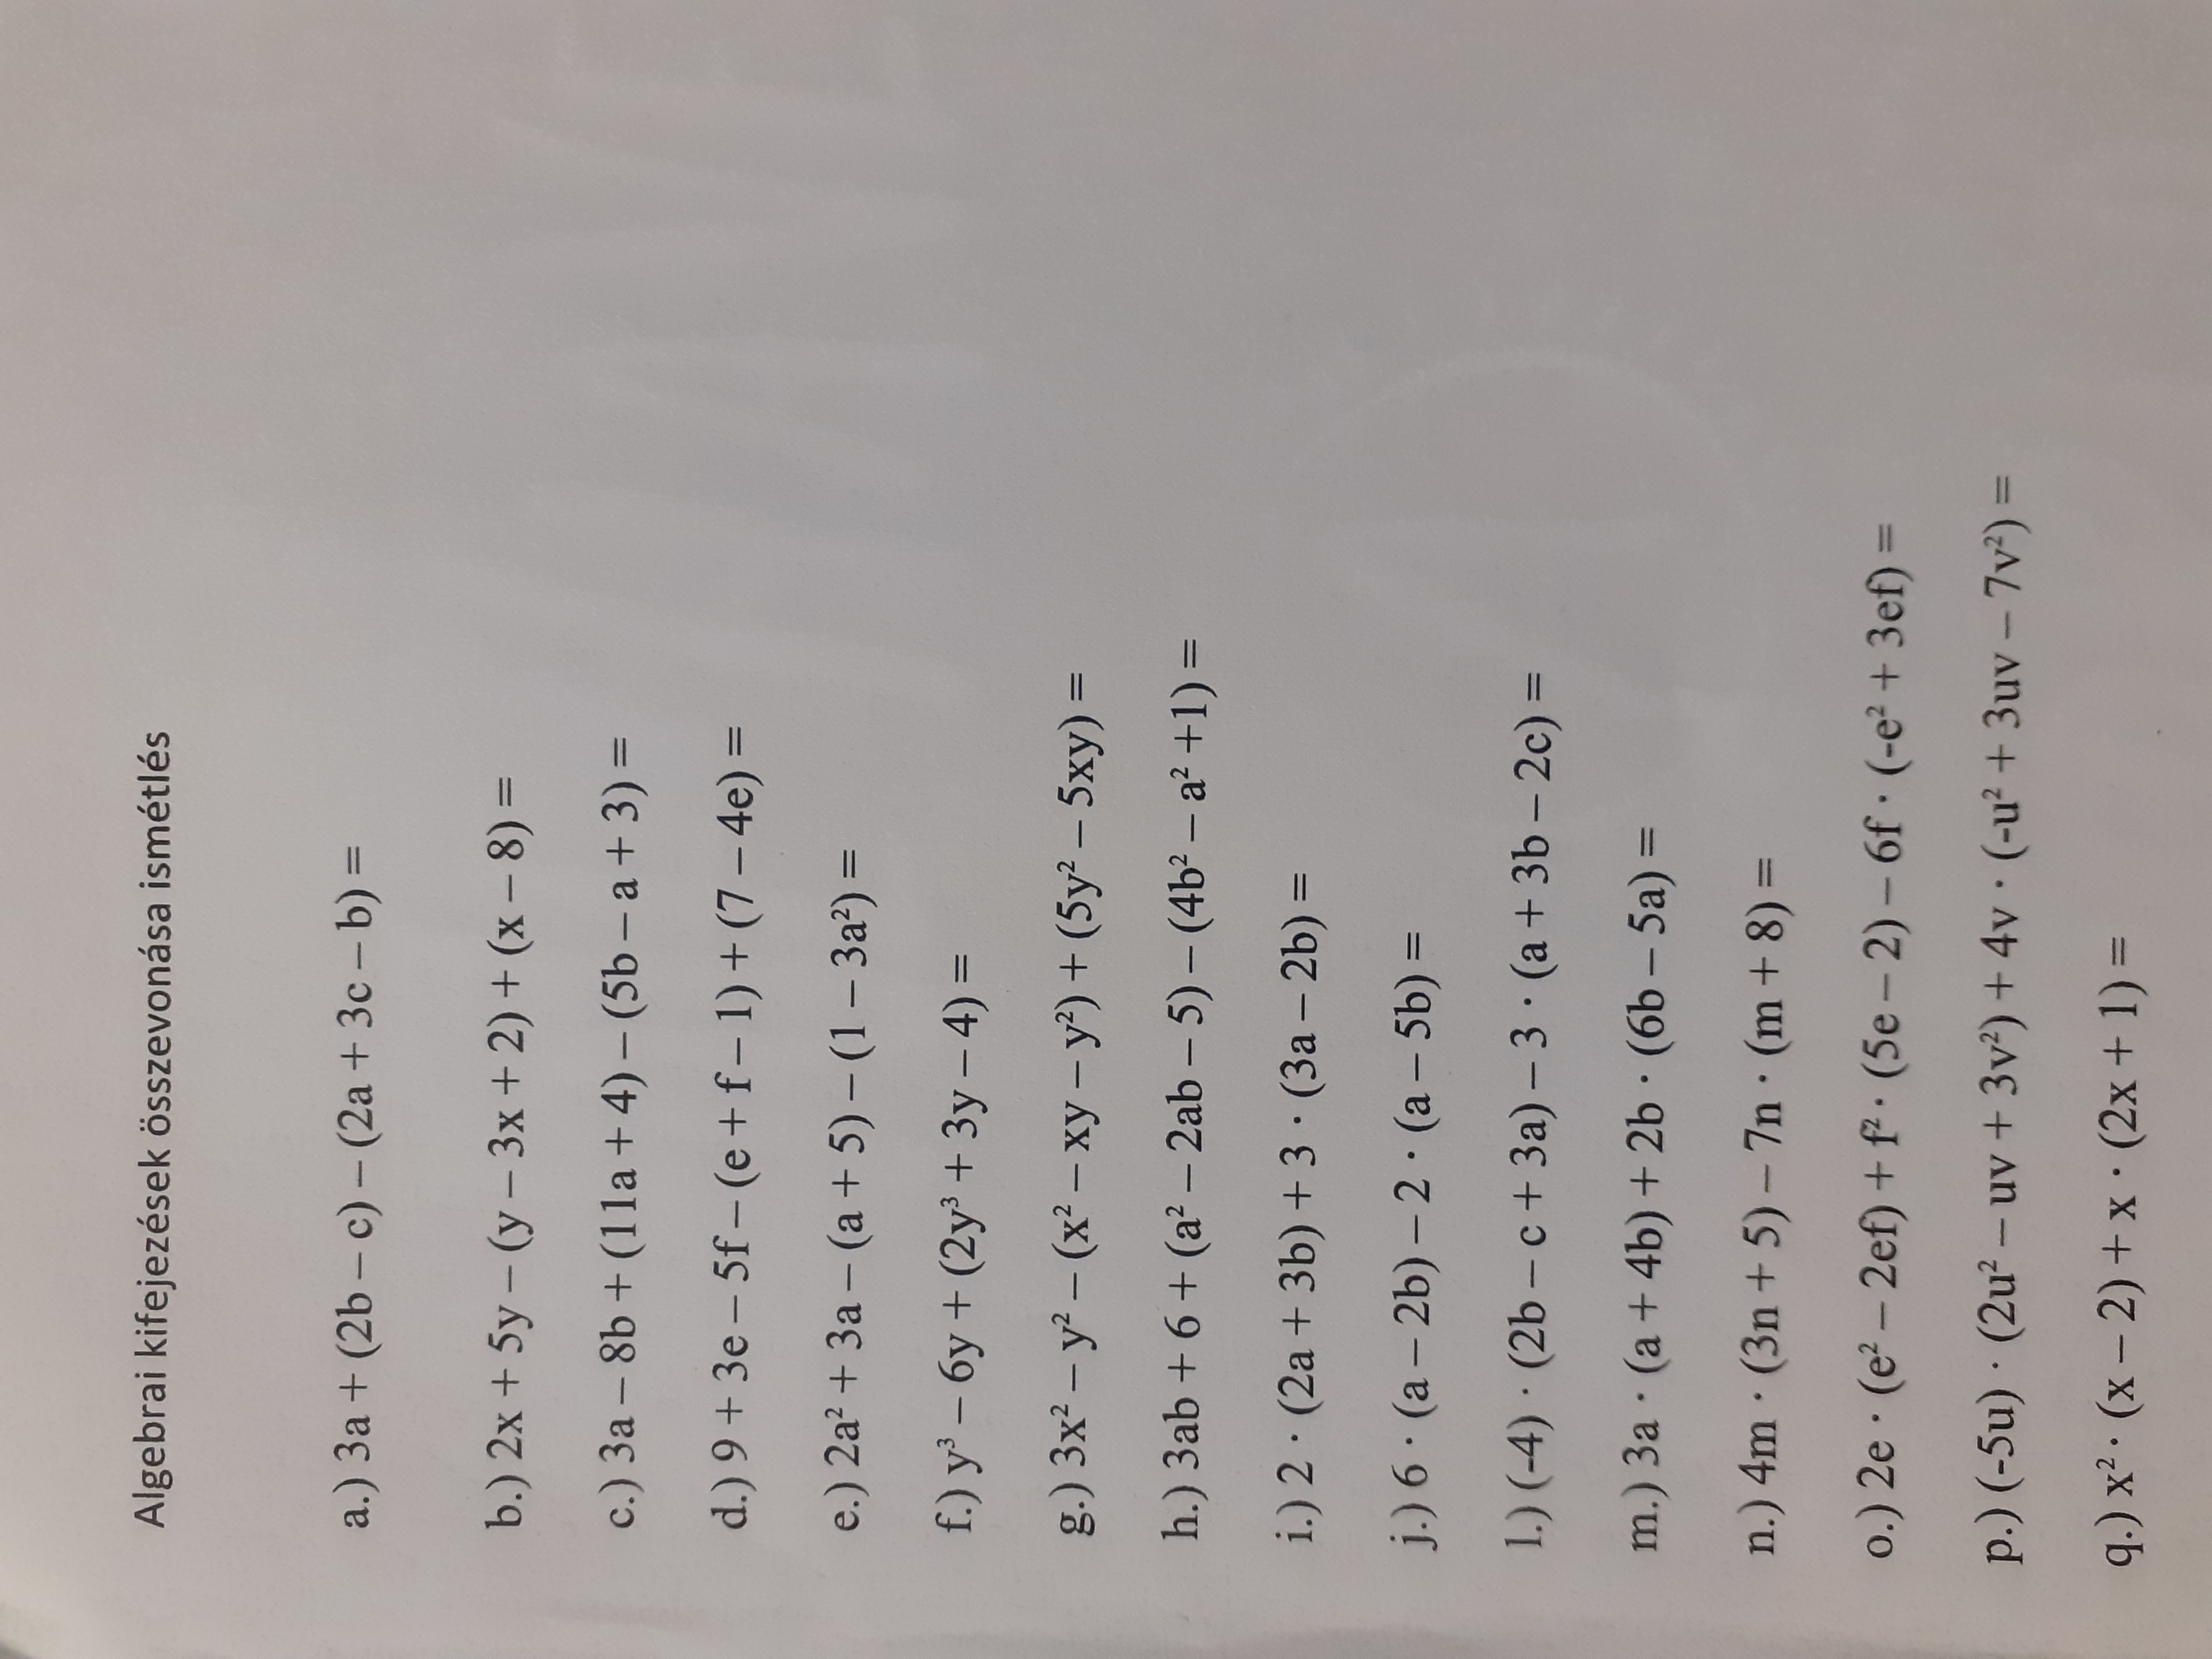 Algebrai kifejezések összevonása ismétlés
a.) 3a + (2b – c) – (2a + 3c – b) =
b.) 2x + 5y – (y – 3x + 2) + (x – 8) =
c.) 3a – 8b + (11a + 4) – (5b – a + 3) =
d.) 9 + 3e – 5f – (e + f – 1) + (7 – 4e) =
e.) 2a² + 3a – (a + 5) – (1 – 3a²) =
f.) y³ – 6y + (2y³ + 3y – 4) =
g.) 3x² – y² – (x² – xy – y²) + (5y² – 5xy) =
h.) 3ab + 6 + (a² – 2ab – 5) – (4b² – a² +1) =
i.) 2 · (2a + 3b) + 3 · (3a – 2b) =
j.) 6 · (a – 2b) – 2 · (a – 5b) =
l.) (-4) · (2b – c + 3a) – 3 · (a + 3b – 2c) =
m.) 3a · (a + 4b) + 2b · (6b – 5a) =
n.) 4m · (3n + 5) – 7n · (m + 8) =
o.) 2e · (e² – 2ef) + f² · (5e – 2) – 6f · (-e² + 3ef) =
p.) (-5u) · (2u² – uv + 3v²) + 4v · (-u² + 3uv – 7v²) =
q.) x² · (x – 2) + x · (2x + 1) =